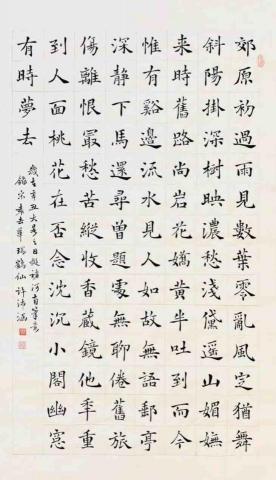 郊原初過雨見數葉零亂風定猶舞
斜陽掛深樹映濃愁淺黛遥山媚嫵
来時舊路尚岩花嬌黄半吐到而今
惟有谿邊流水見人如故無語郵亭
深静下馬還尋曾題處無聊倦舊旅
傷離恨冣愁苦縱收香藏鏡他秊重
到人面桃花在否念沈沉小閣幽窓
有時夢去
歲在辛丑大暑之日
錄宋袁去華瑞鶴仙許